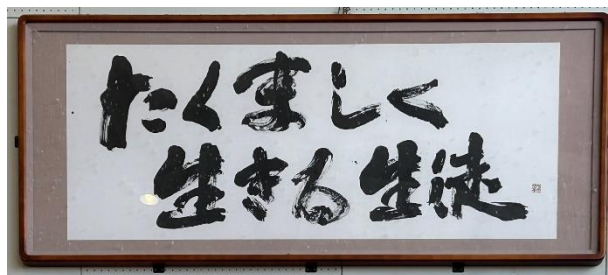 たくましく
生きる生徒